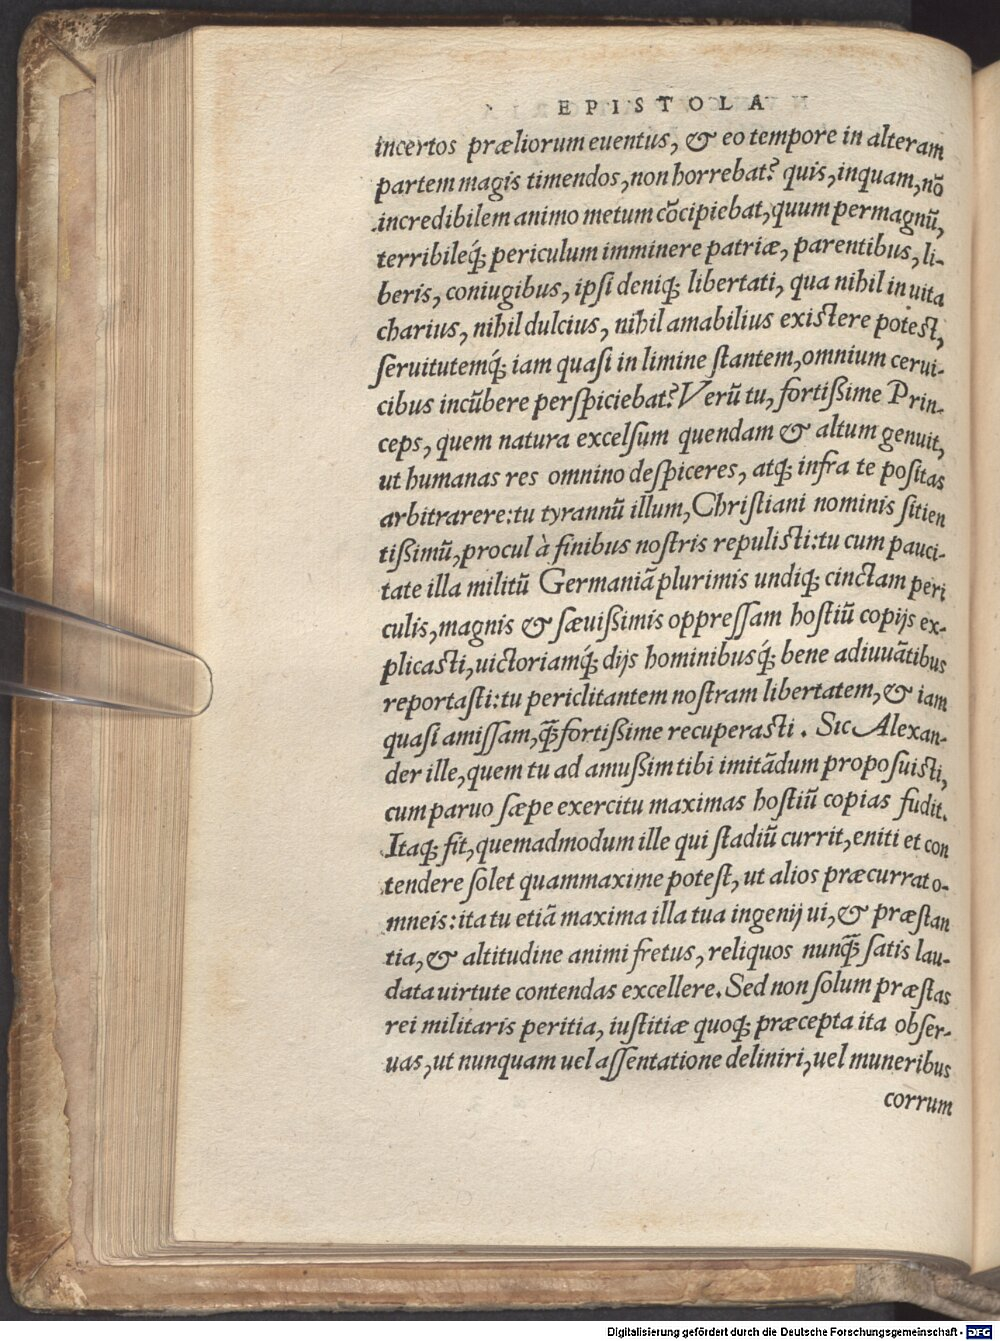 EPISTOLA
incertos præliorum euentus, & eo tempore in alteram
partem magis timendos, non horrebat? quis, inquam, nõ
incredibilem animo metum cõcipiebat, quum permagnũ,
terribileq́; periculum imminere patriæ, parentibus, li-
beris, coniugibus, ipſi deniq; libertati, qua nihil in uita
charius, nihil dulcius, nihil amabilius exiſtere poteſt,
ſeruitutemq́; iam quaſi in limine ſtantem, omnium cerui-
cibus incũbere perſpiciebat? Verũ tu, fortiſsime Prin-
ceps, quem natura excelſum quendam & altum genuit,
ut humanas res omnino deſpiceres, atq; infra te poſitas
arbitrarere: tu tyrannũ illum, Chriſtiani nominis ſitien
tiſsimũ, procul à finibus noſtris repuliſti: tu cum pauci-
tate illa militũ Germaniã plurimis undiq; cinctam peri
culis, magnis & ſæuiſsimis oppreſſam hoſtiũ copijs ex-
plicaſti, uictoriamq́; dijs hominibusq́; bene adiuuãtibus
reportaſti: tu periclitantem noſtram libertatem, & iam
quaſi amiſſam, q̃ fortiſsime recuperaſti. Sic Alexan-
der ille, quem tu ad amuſsim tibi imitãdum propoſuiſti,
cum paruo ſæpe exercitu maximas hoſtiũ copias fudit.
Itaq; fit, quemadmodum ille qui ſtadiũ currit, eniti et con
tendere ſolet quammaxime poteſt, ut alios præcurrat o-
mneis: ita tu etiã maxima illa tua ingenij ui, & præſtan
tia, & altitudine animi fretus, reliquos nunq̃ ſatis lau-
data uirtute contendas excellere. Sed non ſolum præſtas
rei militaris peritia, iuſtitiæ quoq; præcepta ita obſer-
uas, ut nunquam uel aſſentatione deliniri, uel muneribus
corrum
Digitalisierung gefördert durch die Deutsche Forschungsgemeinschaft - DFG